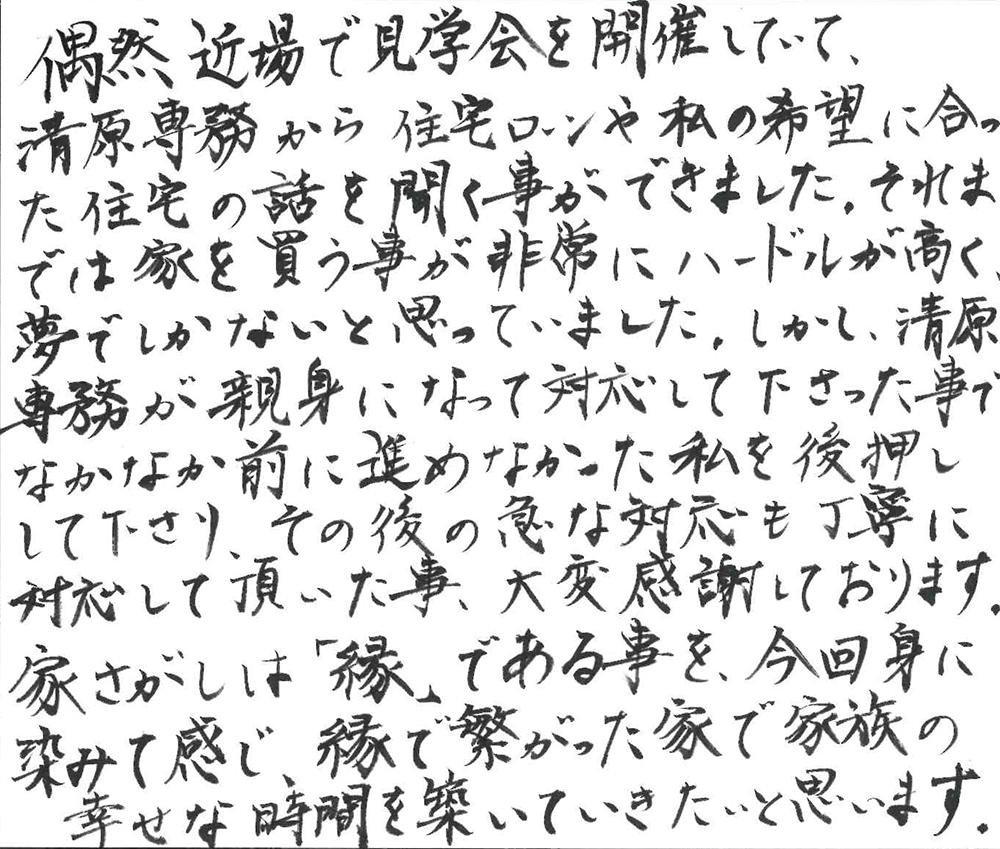 偶然、近場で見学会を開催していて、
清原専務から住宅ローンや私の希望に合っ
た住宅の話を聞く事ができました。それま
では家を買う事が非常にハードルが高く、
夢でしかないと思っていました。しかし、清原
専務が親身になって対応して下さった事で
なかなか前に進めなかった私を後押し
して下さり、その後の急な対応も丁寧に
対応して頂いた事、大変感謝しております。
家さがしは「縁」である事を、今回身に
染みて感じ、縁で繁がった家で家族の
幸せな時間を築いていきたいと思います。